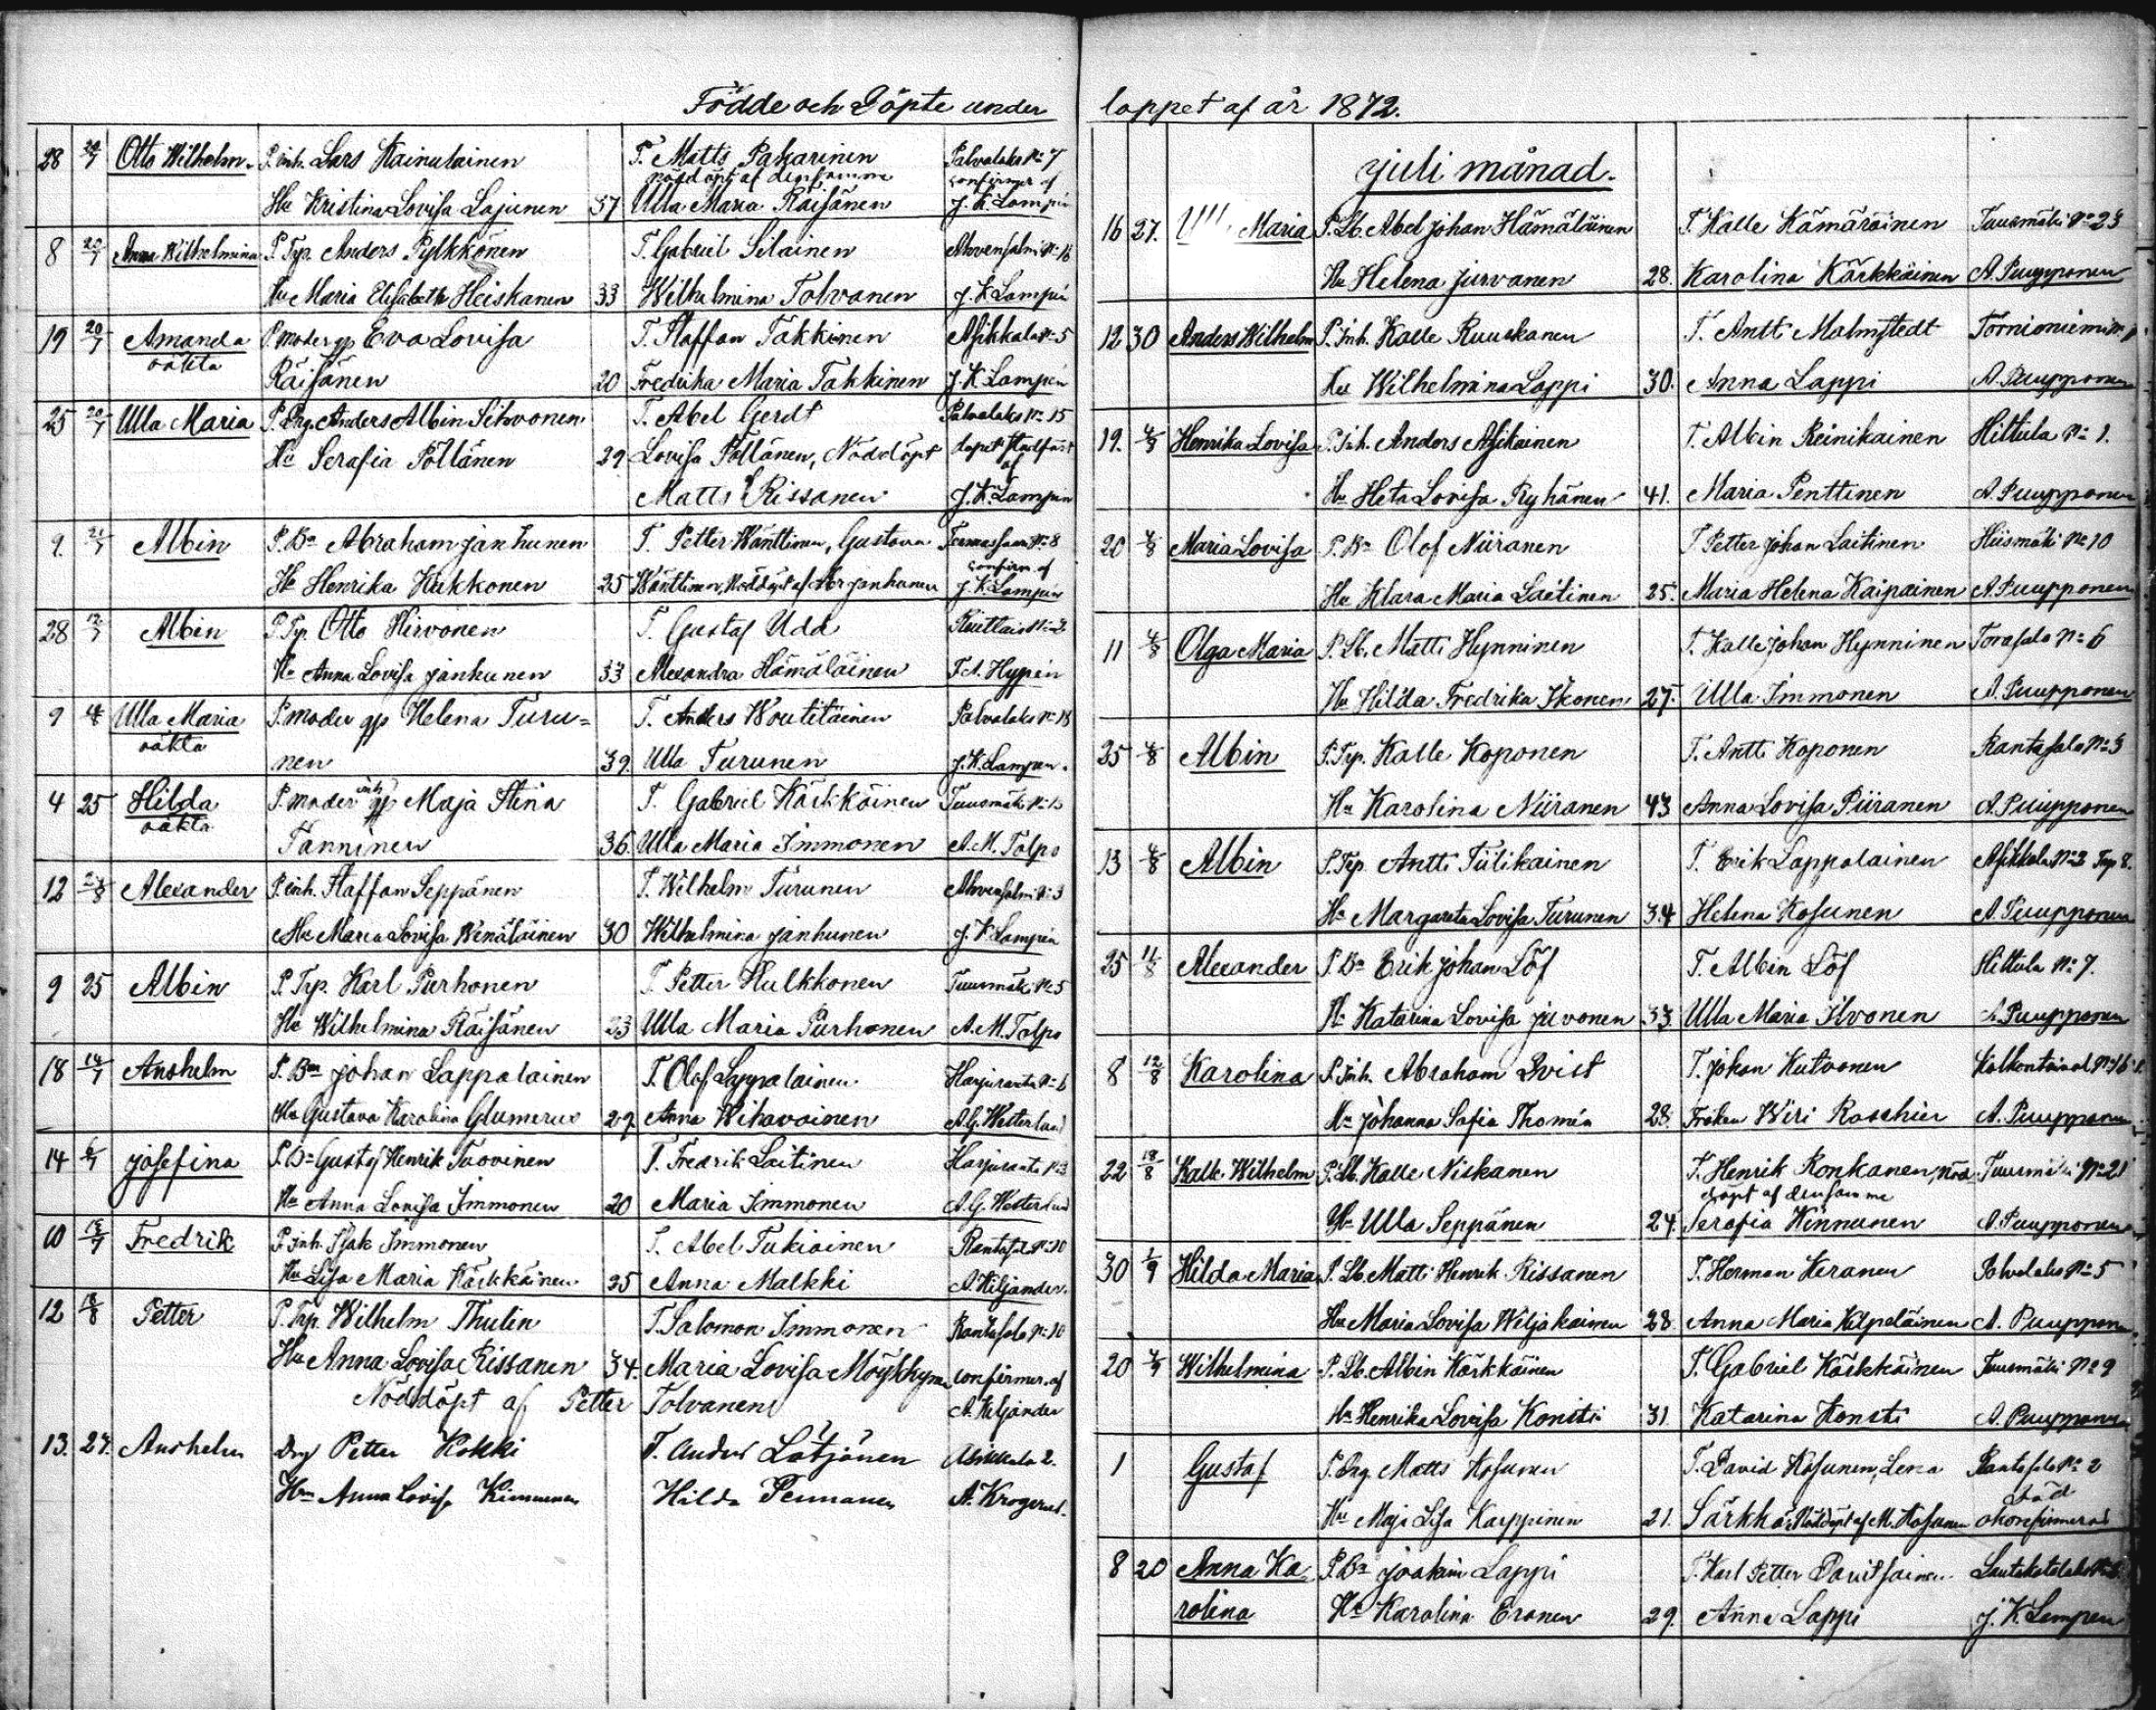 Födde och Döpte under
28 20/7 Otto Wilhelm. P. inh. Lars Kainulainen T. Matts Pakarinen Palvalaks No 7
nöddöpt af densamme confirmer af
Hu Kristina Lovisa Lajunen 37 Ulla Maria Räisänen J. K. Lampén
8 20/7 Anna Wilhelmina P. Trp. Anders Pylkkönen T. Gabriel Silainen Ahvensalmi No 16
Hu Maria Elisabeth Heiskanen 33 Wilhelmina Tolvanen J. K. Lampén
19 20/7 Amanda P. moder gp Eva Lovisa T. Staffan Takkinen Asikkala No 5
oäkta Räisänen 20 Fredrika Maria Takkinen J. K. Lampén
25 20/7 Ulla Maria P. Drg. Anders Albin Sihvonen T. Abel Gerdt Palvalaks No 15
Hu Serafia Pöllänen 29 Lovisa Pöllänen, Nöddöpt dopet stadfäst af
Matts Rissanen J. K. Lampén
9. 21/7 Albin P. Bn Abraham Janhunen T. Petter Wänttinen, Gustava No 8
confirm. af
Hu Henrika Kukkonen 25 Wänttinen, Nöddöpt af Abr Janhunen J. K. Lampén
28 12/7 Albin P. Trp. Otto Hirvonen T. Gustaf Udd No 2
Hu Anna Lovisa Janhunen 33 Alexandra Hämäläinen F. A. Hypén
9 Ulla Maria P. moder gp Helena Turu= T. Anders Woutilainen Palvalaks No 18
oäkta nen 39. Ulla Turunen J. K. Lampén.
4 25 Hilda P. moder inh gp Maja Stina T. Gabriel Kärkkäinen Tuusmäki
oäkta Tanninen 36. Ulla Maria Immonen A. M. Tolpo
12 Alexander P. inh. Staffan Seppänen T. Wilhelm Turunen Ahvensalmi No 3
Hu Maria Lovisa Wenäläinen 30 Wilhelmina Janhunen J. K. Lampén
9 25 Albin P. Trp. Karl Purhonen T. Petter Hulkkonen Tuusmäki No 5
Hu Wilhelmina Räisänen 23 Ulla Maria Purhonen A. M. Tolpo
18 14/7 Anshelm P. Bn Johan Lappalainen T. Olof Lappalainen Harjuranta No 6
Hu Gustava Karolina Glumerus 29 Anna Wihavainen A. G. Westerlund
14 Josefina P. Bn Gustaf Henrik Tuovinen T. Fredrik Laitinen Harjuranta No 3
Hu Anna Lovisa Immonen 20 Maria Immonen A. G. Westerlund
10 Fredrik P. Inh. Isak Immonen T. Abel Tukiainen Rantasal No 10
Hu Lisa Maria Kärkkäinen 25 Anna Malkki A. Kiljander.
12 18/8 Petter P. Trp. Wilhelm Thulin T. Salomon Immonen Rantasalo No 10
Hu Anna Lovisa Rissanen 34. Maria Lovisa Möykkynen confirmer. af
Nöddöpt af Petter Tolvanen A. Kiljander
13. 27. Anshelm Drg Petter Kokki T. Anders Lötjönen Asikkala 2.
Hn Anna Lovisa Kinnunen Hilda Pennanen A. Krogerus.
loppet af år 1872.
Juli månad.
16 27. Maria P. Lb. Abel Johan Hämäläinen T. Kalle Kämäräinen Tuusmäki No 23
Hu Helena Jurvanen 28. Karolina Kärkkäinen A. Puupponen
12 30 Anders Wilhelm P. Inh. Kalle Ruuskanen T. Antti Malmstedt Tornioniemi
Hu Wilhelmina Lappi 30. Anna Lappi A. Puupponen
19. 4/8 Henrika Lovisa P. Inh. Anders Asikainen T. Albin Reinikainen Hiltula No 1.
Hu Heta Lovisa Ryhänen 41. Maria Penttinen A. Puupponen
20 4/8 Maria Lovisa P. Bn Olof Niiranen T. Petter Johan Laitinen Hiismäki No 10
Hu Klara Maria Laitinen 25. Maria Helena Kaipainen A. Puupponen
11 4/8 Olga Maria P. Lb. Matti Hynninen T. Kalle Johan Hynninen Torasalo No 6
Hu Hilda Fredrika Ikonen 27. Ulla Immonen A. Puupponen
25 4/8 Albin P. Trp. Kalle Koponen T. Antti Koponen Rantasalo No 3
Hu Karolina Niiranen 43 Anna Lovisa Piiranen A. Puupponen
13 4/8 Albin P. Trp. Antti Tiilikainen T. Erik Lappalainen Asikkala No 2 Trp 8.
Hu Margareta Lovisa Turunen 34 Helena Kosunen A. Puupponen
25 11/8 Alexander P. Bn Erik Johan Löf T. Albin Löf Hiltula No 7.
Hu Katarina Lovisa Juvonen 33. Ulla Maria Ilvonen A. Puupponen
8 12/8 Karolina P. Inh. Abraham Qvist T. Johan Kutvonen
Hu Johanna Sofia Thomén 28. Fröken Wiri Roschier A. Puupponen
22 18/8 Kalle Wilhelm P. Lb. Kalle Niskanen T. Henrik Ronkanen, nöd Tuusmäki No 21
döpt af densamme
Hu Ulla Seppänen 24. Serafia Kinnunen A. Puupponen
30 1/9 Hilda Maria P. Lb. Matti Henrik Rissanen T. Herman Keranen Palvalaks No 5
Hu Maria Lovisa Wiljakainen 28. Anna Maria Kilpeläinen A. Puupponen
20 Wilhelmina P. Lb. Albin Kärkkäinen T. Gabriel Kärkkäinen Tuusmäki No 9
Hu Henrika Lovisa Konsti 31. Katarina Konsti A. Puupponen
1 Gustaf P. Drg. Matts Kosunen T. David Kosunen, Lena Rantasalo No 2
död
Hu Maja Lisa Karppinen 21. Särkkä, Nöddöpt af M. Kosunen okonfirmerad
8 20 Anna Ka- P. Bn Joakim Lappi T. Karl Petter Pauitsainen
rolina Hu Karolina Eronen 29. Anna Lappi J. K. Lampén